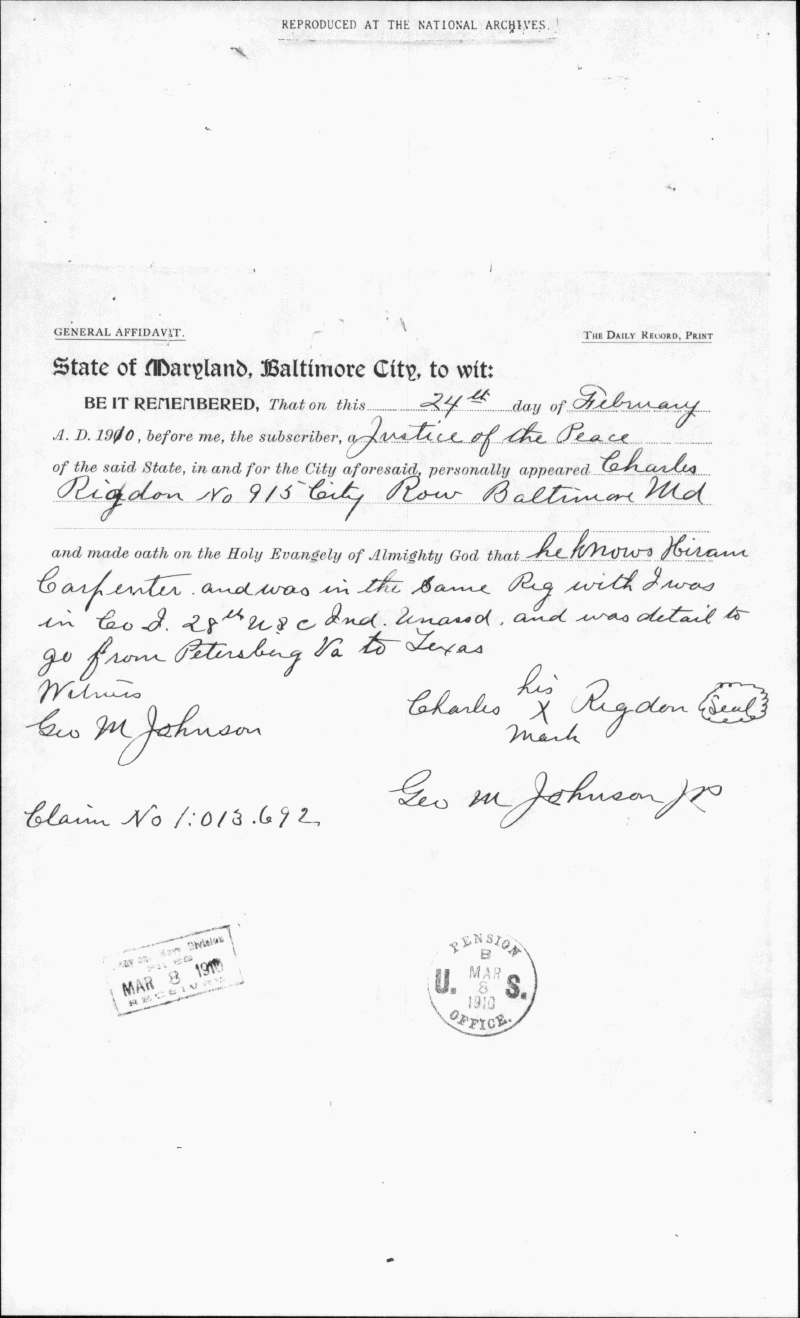 REPRODUCED AT THE NATIONAL ARCHIVES.
GENERAL AFFIDAVIT.
THE DAILY RECORD, PRINT
State of Maryland, Baltimore City, to wit:
BE IT REMEMBERED, That on this 24th day of February
A. D. 1910, before me, the subscriber, a Justice of the Peace
of the said State, in and for the City aforesaid, personally appeared Charles
Rigdon No 915 City Row Baltimore Md
and made oath on the Holy Evangely of Almighty God that he knows Hiram
Carpenter. and was in the Same Reg with I was
in Co I. 28th U S C Ind. Unassd. and was detail to
go from Petersberg Va to Texas
Witness
Geo M Johnson
Charles his X mark Rigdon Seal
Geo M Johnson JP
Claim No 1:013.692
Navy Division
MAR 8 1910
RECEIVED
PENSION
8
U. MAR S.
8
1910
OFFICE.